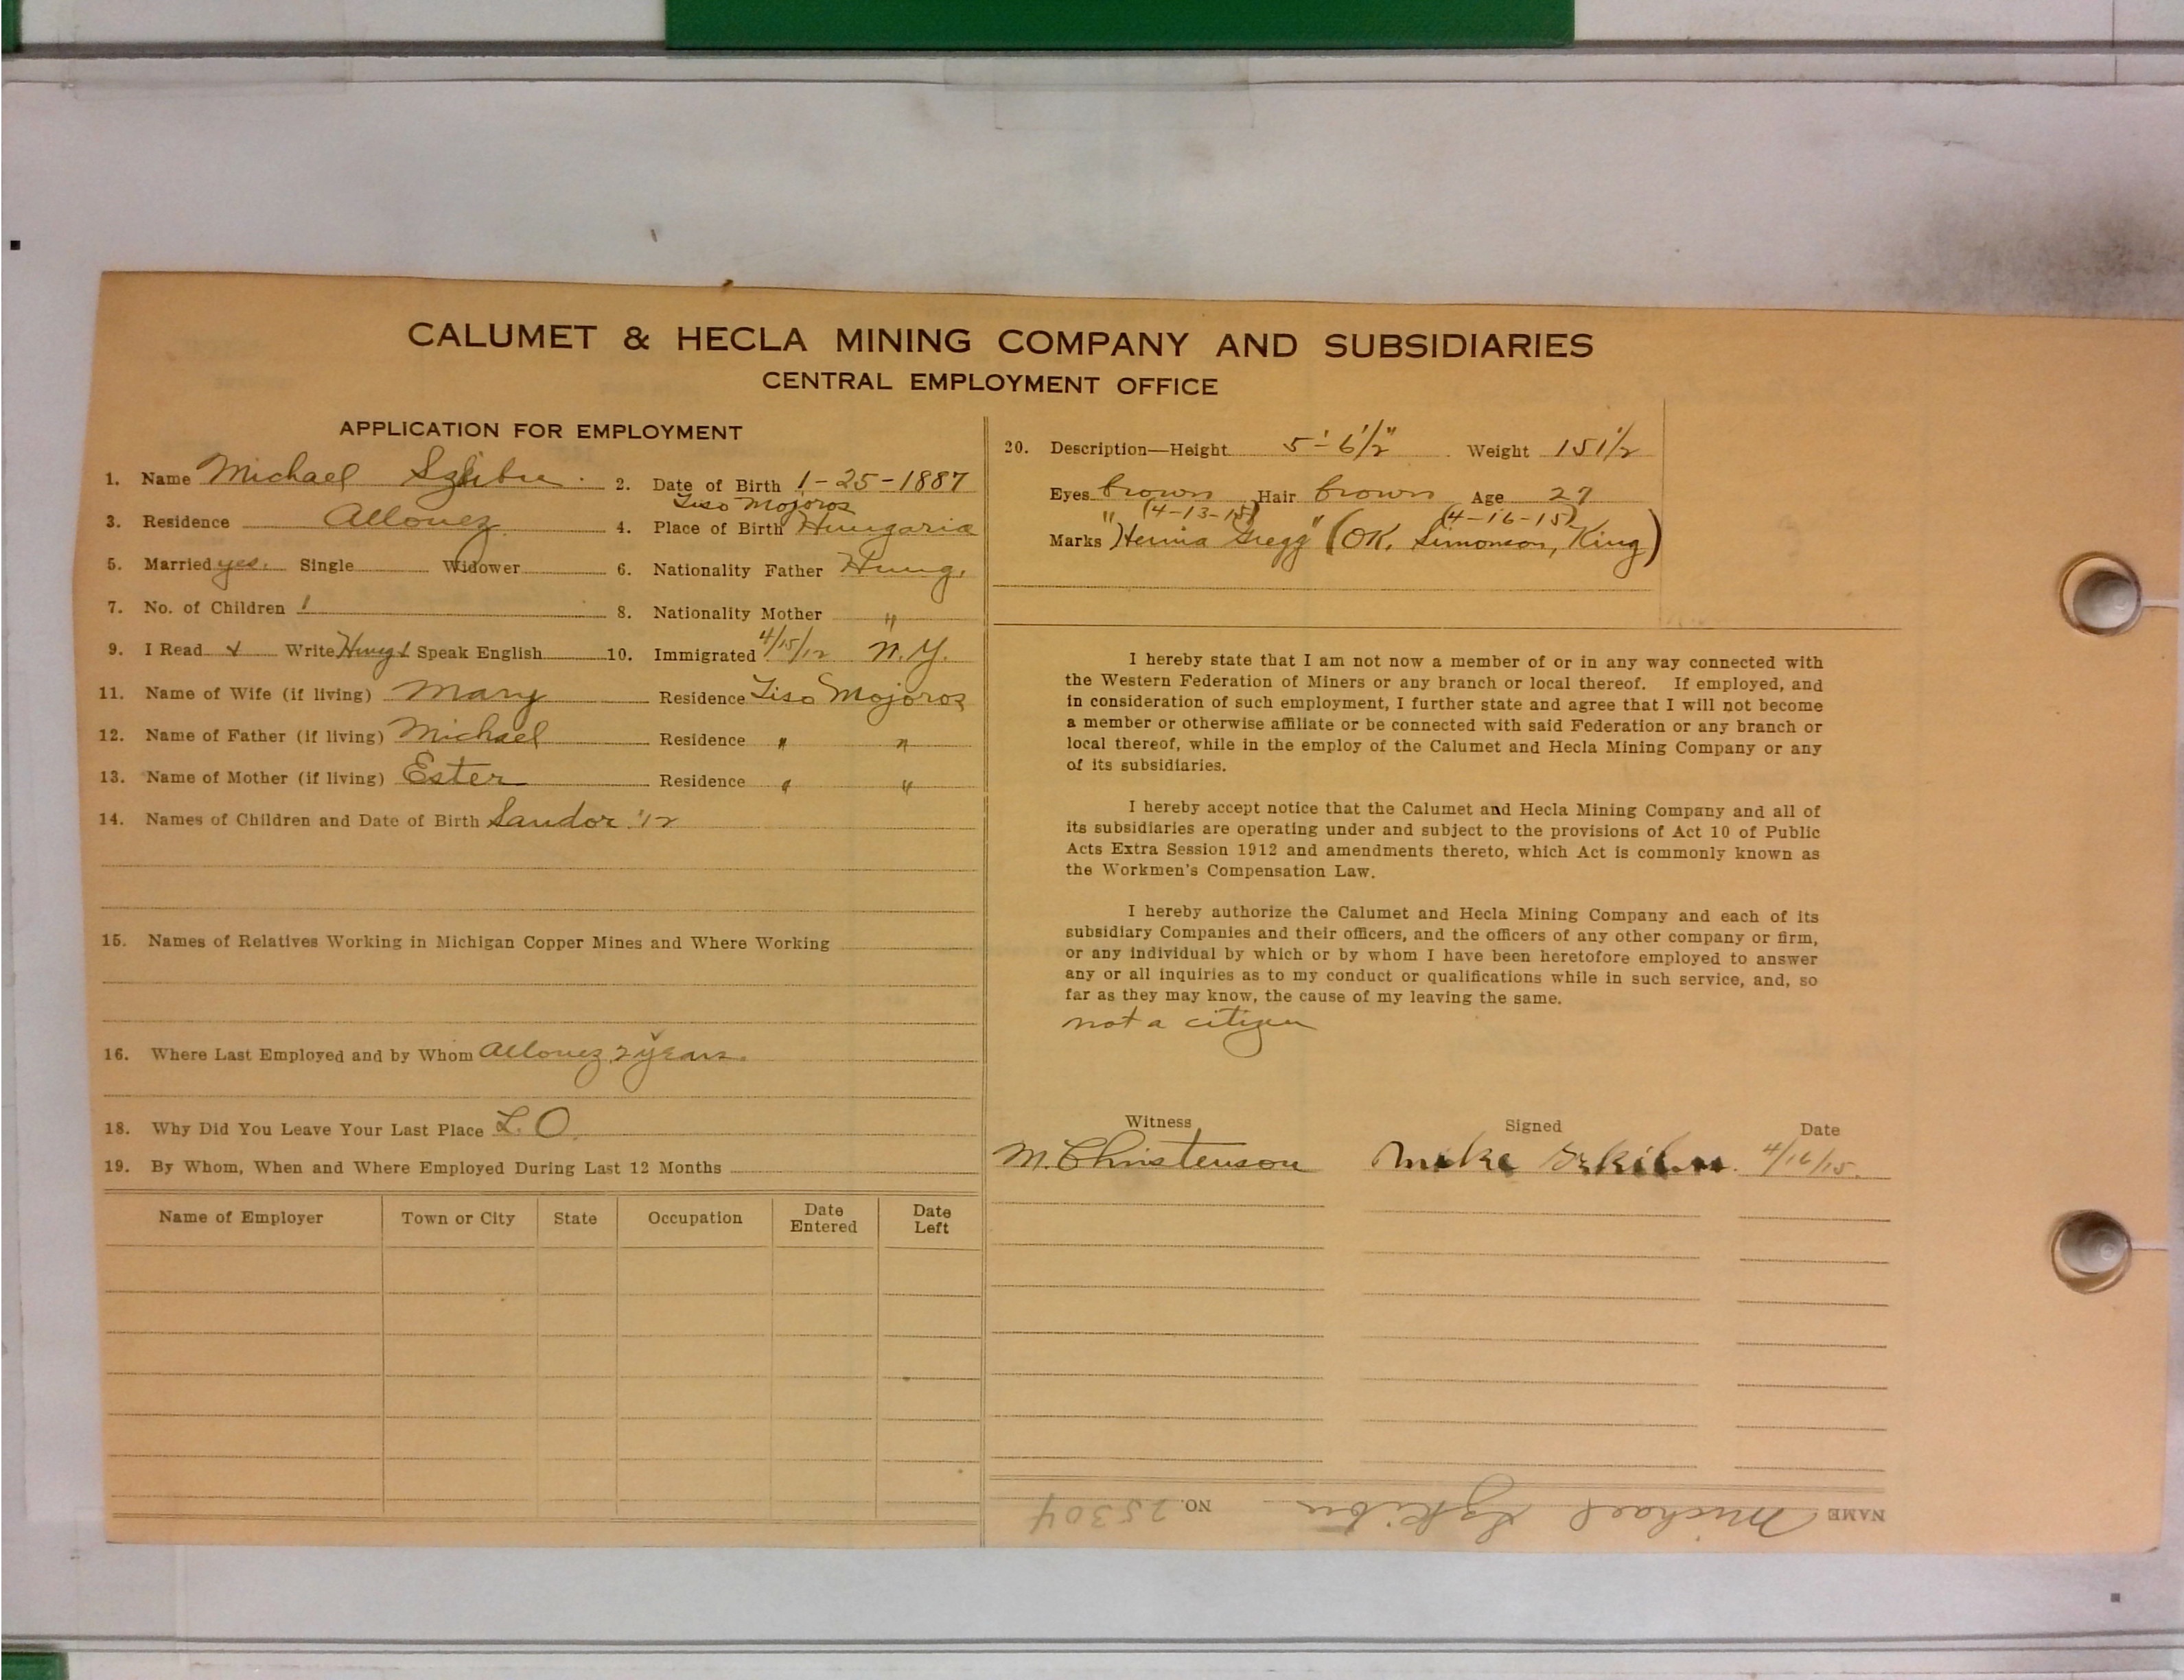 CALUMET & HECLA MINING COMPANY AND SUBSIDIARIES
CENTRAL EMPLOYMENT OFFICE
APPLICATION FOR EMPLOYMENT
1. Name Michael 2. Date of Birth 1-25-1887
Tiso Mojoros
3. Residence Allouez 4. Place of Birth Hungaria
5. Married yes. Single Widower 6. Nationality Father Hung.
7. No. of Children 1 8. Nationality Mother "
9. I Read Write Hung Speak English 10. Immigrated 4/15/12 N.Y.
11. Name of Wife (if living) Mary Residence Tiso Mojoros
12. Name of Father (if living) Michael Residence " "
13. Name of Mother (if living) Ester Residence " "
14. Names of Children and Date of Birth Sandor '12
15. Names of Relatives Working in Michigan Copper Mines and Where Working
16. Where Last Employed and by Whom Allouez 2 years.
18. Why Did You Leave Your Last Place L.O.
19. By Whom, When and Where Employed During Last 12 Months
Name of Employer Town or City State Occupation Date Entered Date Left
20. Description—Height 5'-6½" Weight 151½
Eyes brown Hair brown Age 27
" (4-13-15) (4-16-15)
Marks Hernia Gregg" (OK. Simonson, King)
I hereby state that I am not now a member of or in any way connected with
the Western Federation of Miners or any branch or local thereof. If employed, and
in consideration of such employment, I further state and agree that I will not become
a member or otherwise affiliate or be connected with said Federation or any branch or
local thereof, while in the employ of the Calumet and Hecla Mining Company or any
of its subsidiaries.
I hereby accept notice that the Calumet and Hecla Mining Company and all of
its subsidiaries are operating under and subject to the provisions of Act 10 of Public
Acts Extra Session 1912 and amendments thereto, which Act is commonly known as
the Workmen's Compensation Law.
I hereby authorize the Calumet and Hecla Mining Company and each of its
subsidiary Companies and their officers, and the officers of any other company or firm,
or any individual by which or by whom I have been heretofore employed to answer
any or all inquiries as to my conduct or qualifications while in such service, and, so
far as they may know, the cause of my leaving the same.
not a citizen
Witness Signed Date
M. Christenson Mike 4/16/15.
NAME Michael NO. 25304